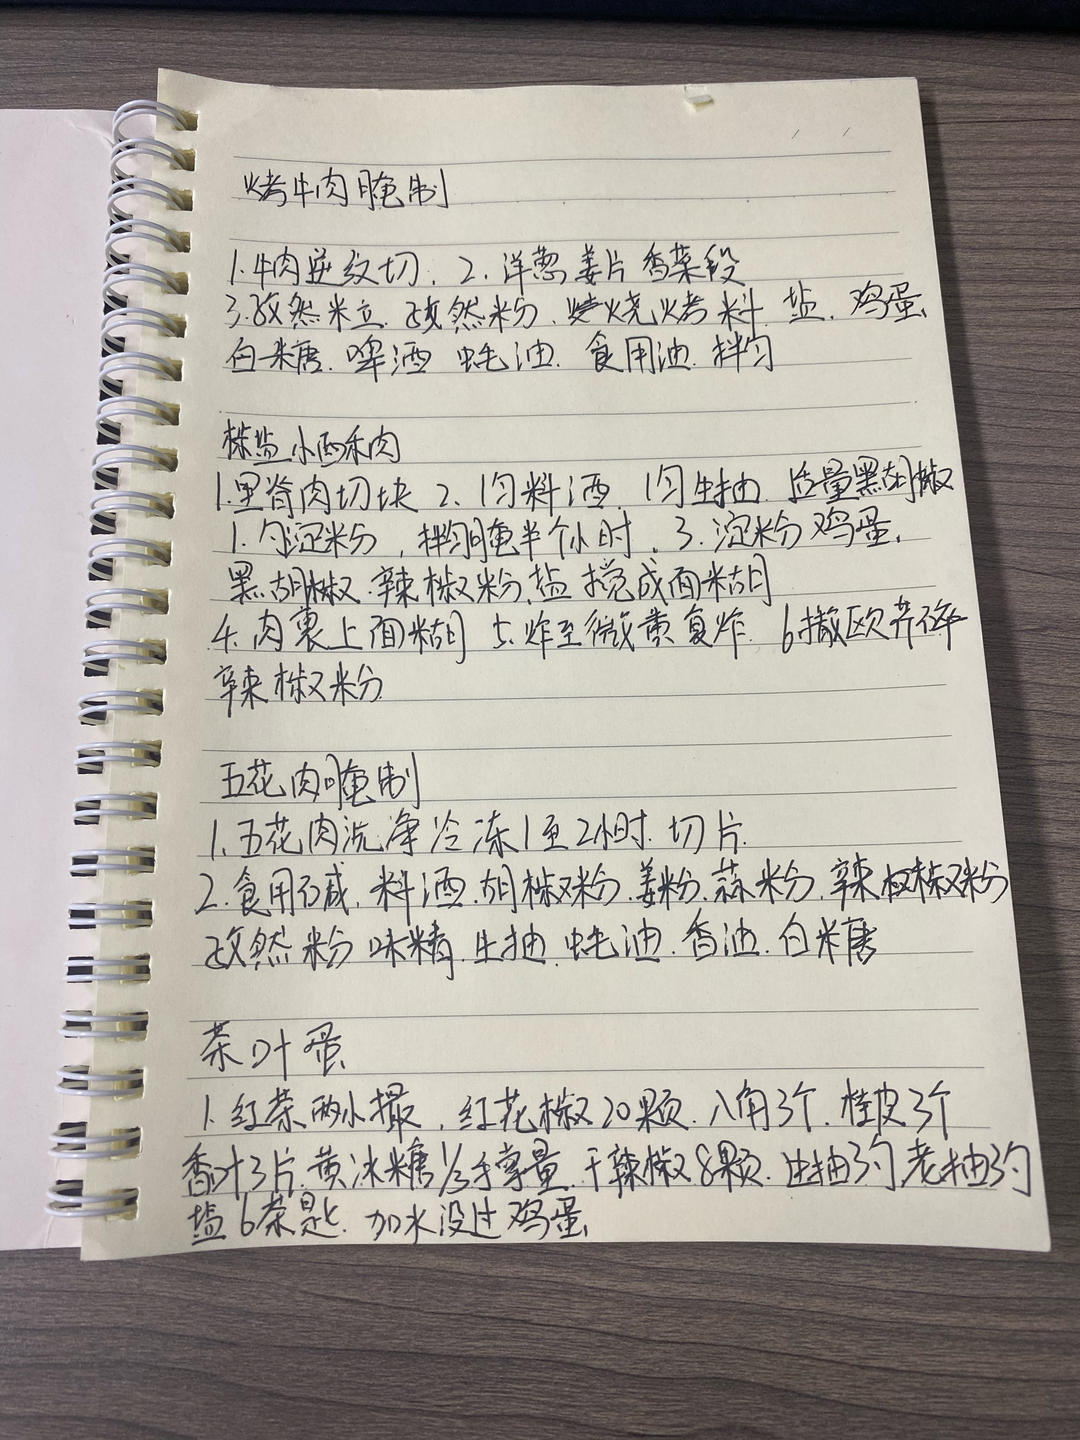 烤牛肉腌制
1.牛肉逆纹切. 2.洋葱姜片香菜段
3.孜然粒.孜然粉.烧烤料.盐.鸡蛋.
白糖.啤酒 蚝油.食用油.拌匀
椒盐小酥肉
1.里脊肉切块 2. 1勺料酒. 1勺生抽. 适量黑胡椒
1.勺淀粉,拌匀腌半个小时. 3.淀粉鸡蛋.
黑胡椒.辣椒粉.盐搅成面糊
4.肉裹上面糊 5.炸至微黄复炸. 6撒欧芹碎
辣椒粉
五花肉腌制
1.五花肉洗净冷冻1至2小时.切片.
2.食用碱.料酒.胡椒粉.姜粉.蒜粉.辣椒粉
孜然粉 味精.生抽.蚝油.香油.白糖
茶叶蛋
1.红茶两小撮,红花椒20颗.八角3个.桂皮3个
香叶3片.黄冰糖1/3手掌量.干辣椒8颗.生抽3勺老抽3勺
盐6茶匙.加水没过鸡蛋